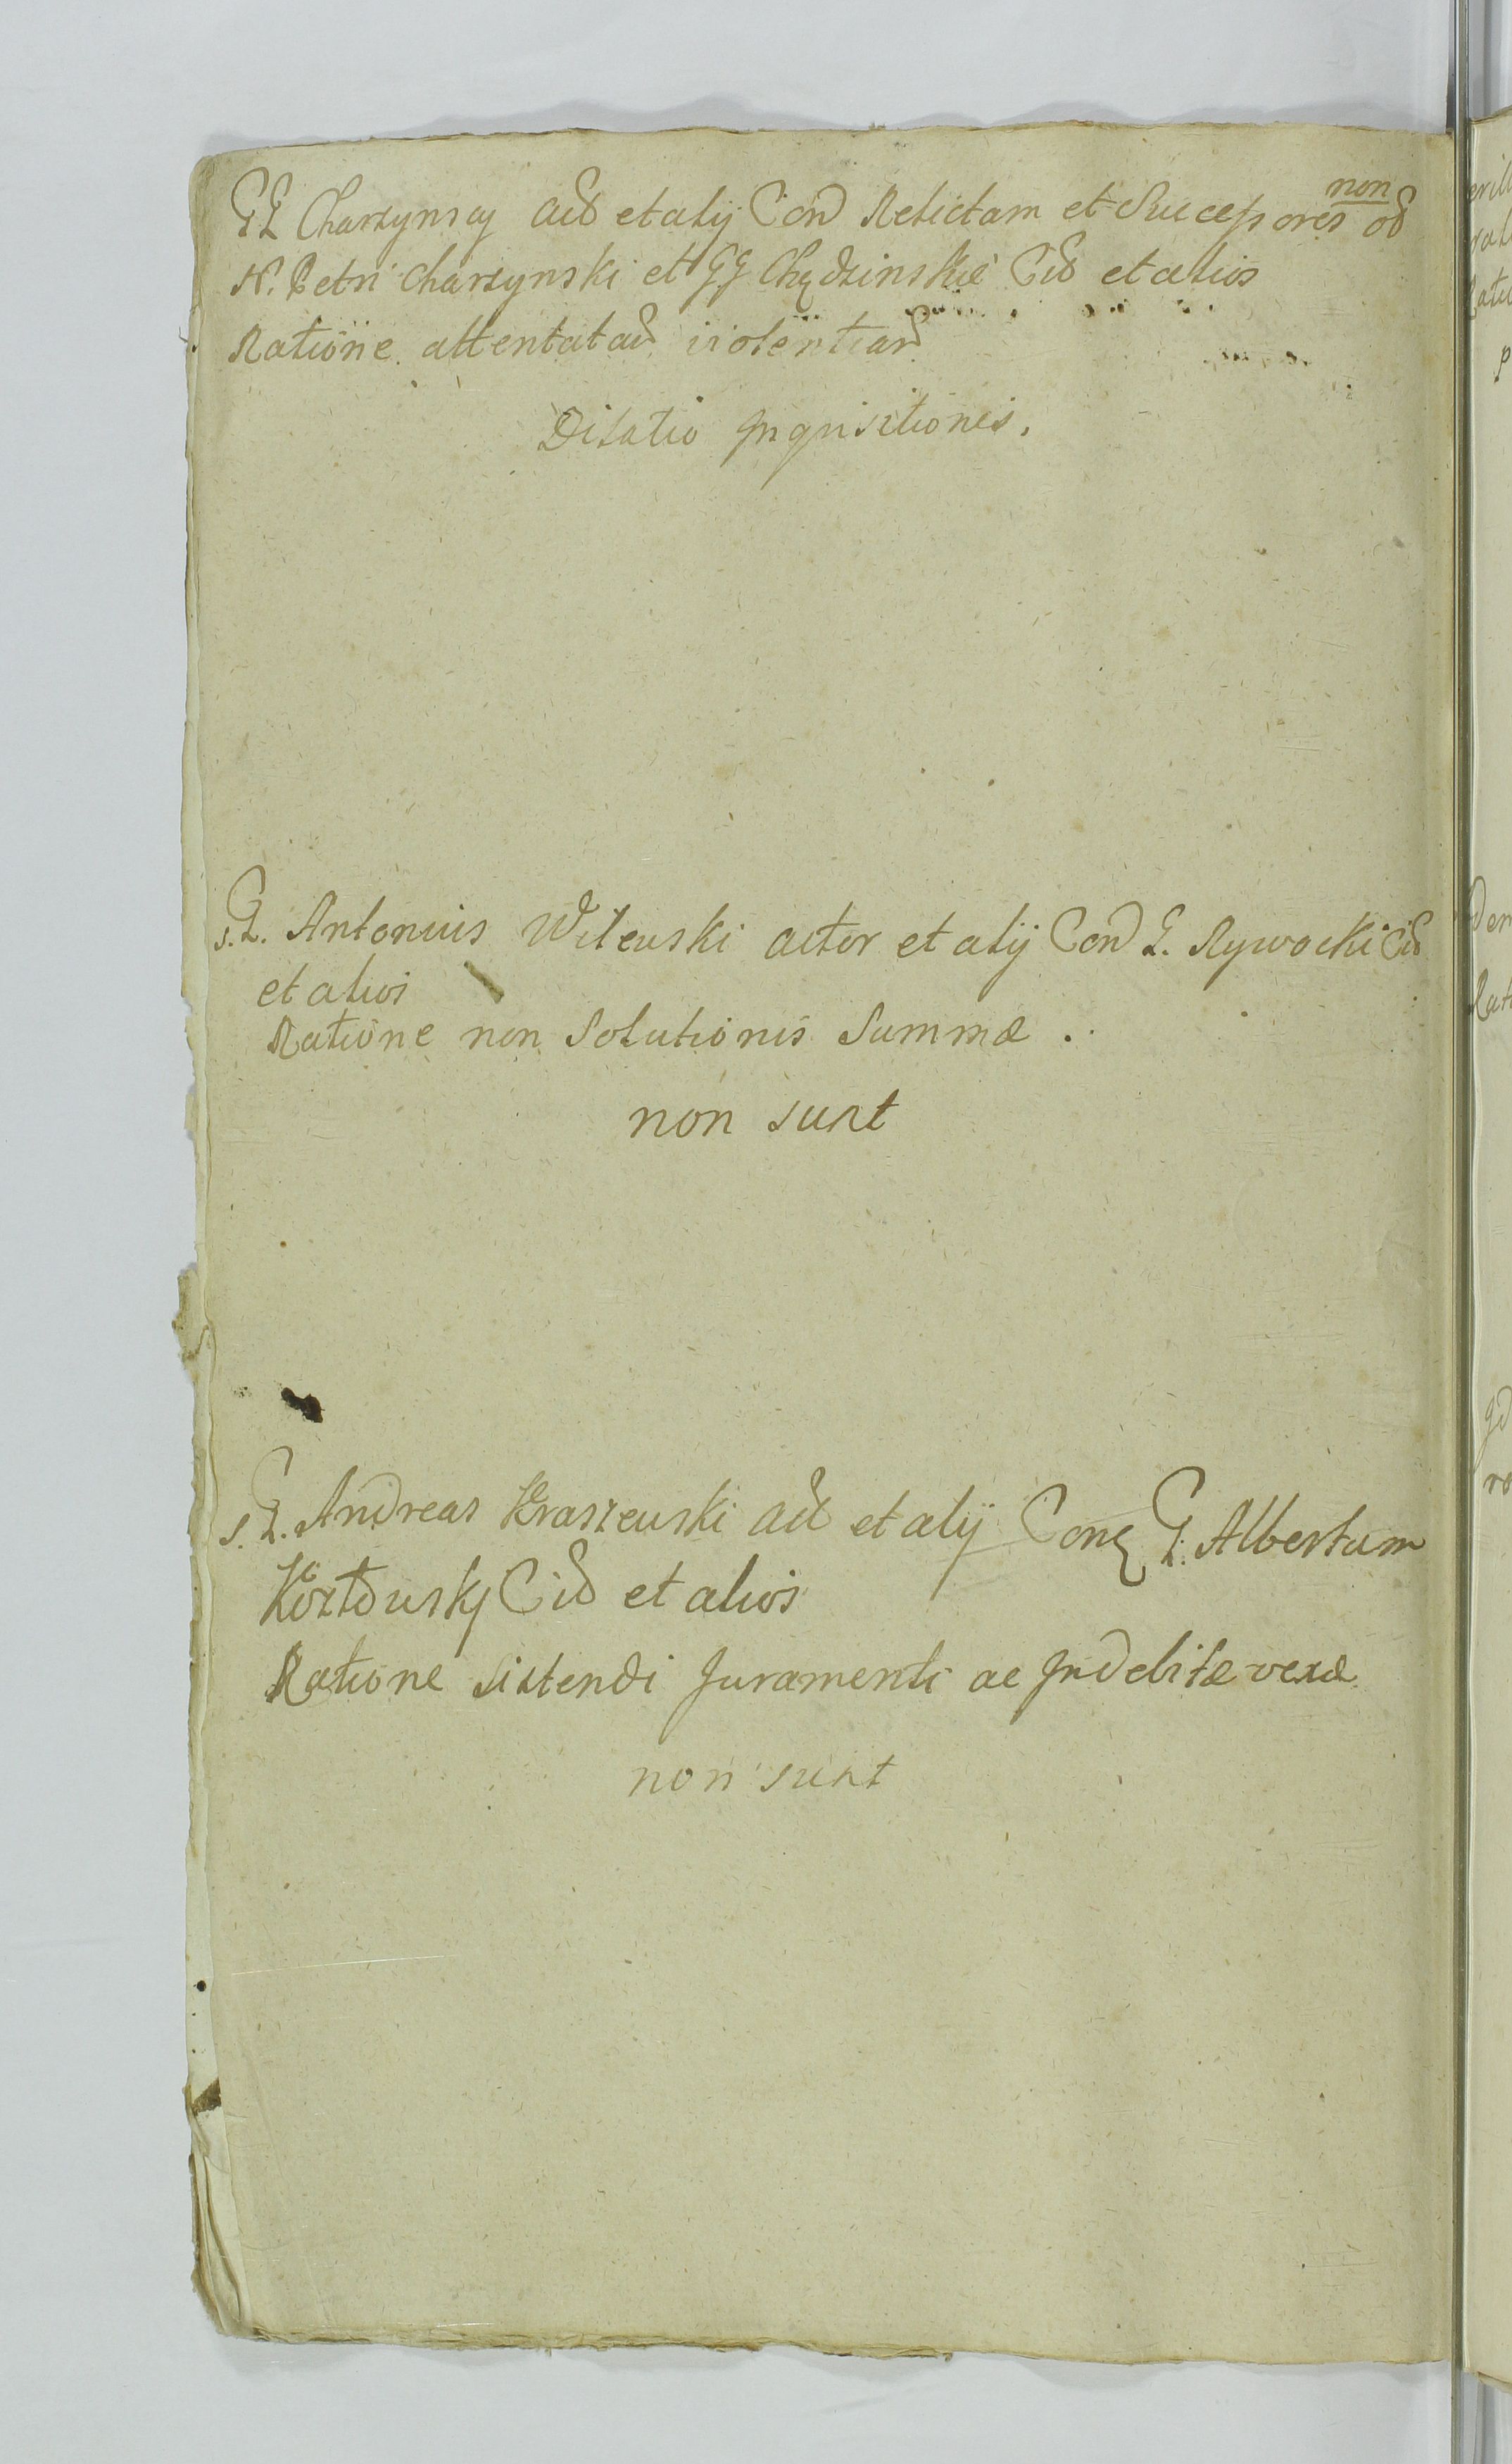 GG Charzynscy Act et alij Con Relictam et Successores non ob
N. Petri Charzynski et GG Chądzinskie Cit et alios
Ratione attentatar violentiar
Dilatio Inquisitionis.
s. G. Antonius Wilewski actor et alij Con G. Rywocki Cit
et alios
Ratione non Solutionis Summæ.
non sunt
s. G. Andreas Kraszewski Act et alij Con G. Albertum
Cit et alios
Ratione sistendi Juramenti ac Indebitæ vexæ
non sunt